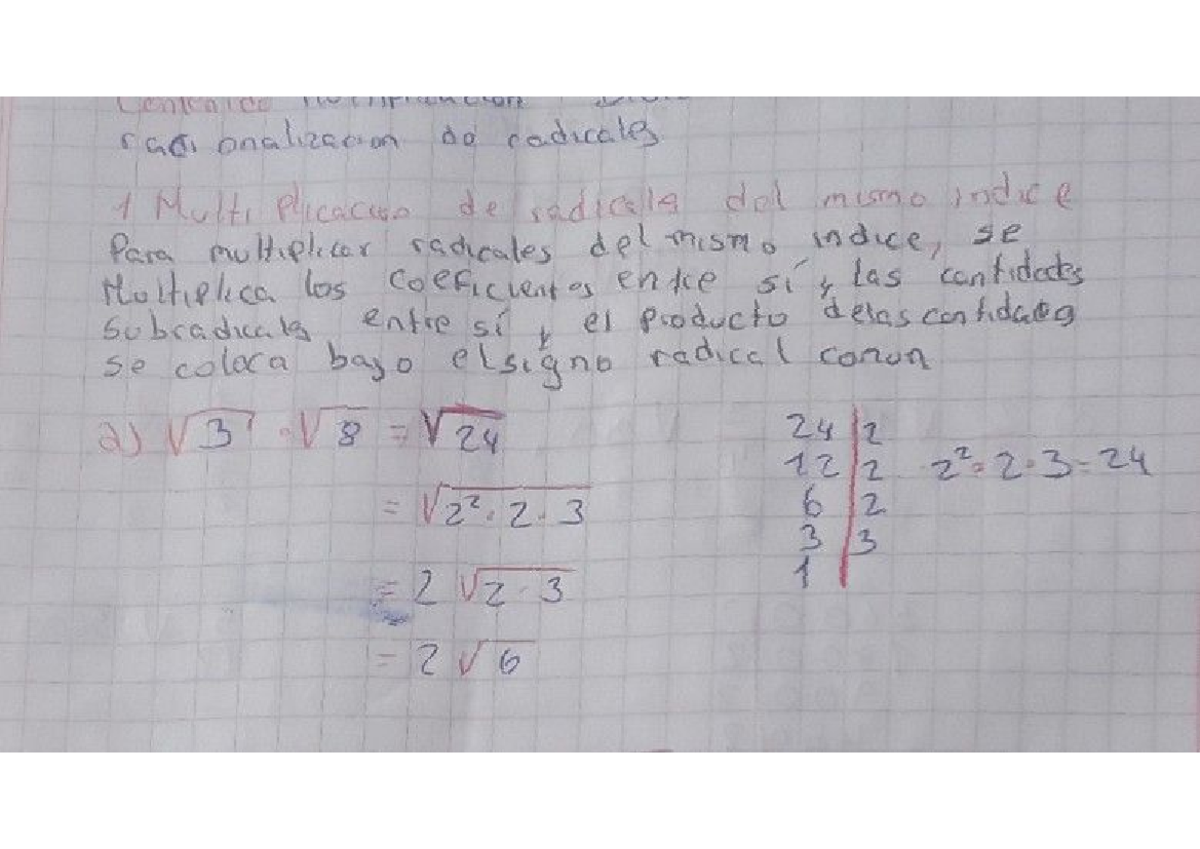 racionalizacion de radicales
1 Multiplicacion de radicales del mismo indice
Para multiplicar radicales del mismo indice, se
Multiplica los coeficientes entre sí y las cantidades
Subradicales entre sí y el producto de las cantidades
se coloca bajo el signo radical comun
a) √3 · √8 = √24
= √2² · 2 · 3
= 2 √2 · 3
= 2 √6
24 | 2
12 | 2 2² · 2 · 3 = 24
6 | 2
3 | 3
1 |